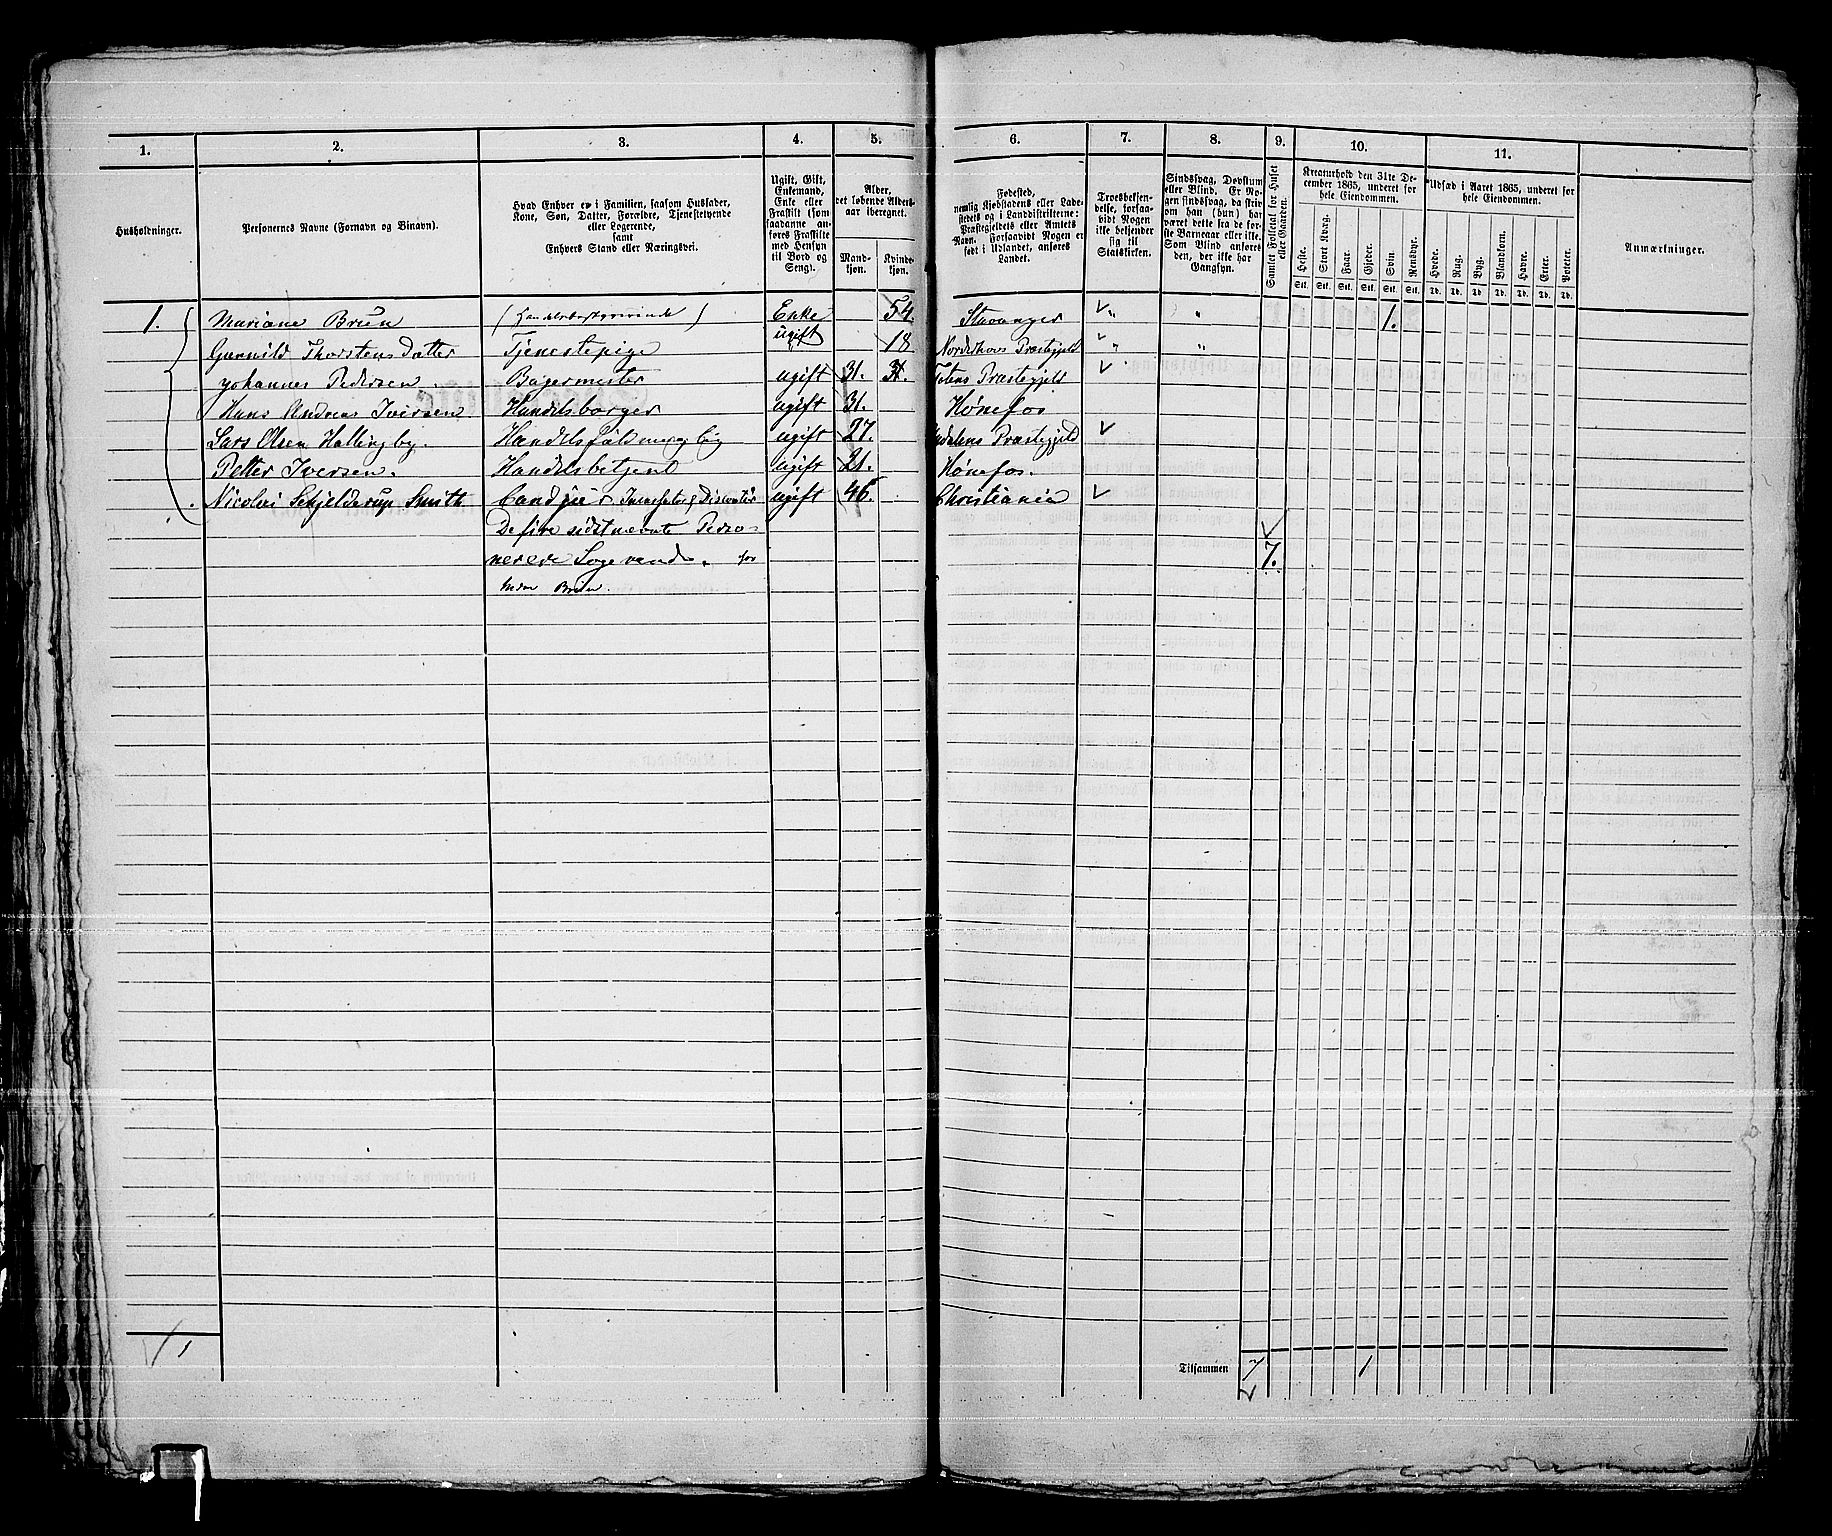 1. 2. 3. 4. 5. 6. 7. 8. 9. 10. 11.
Husholdninger.
Personernes Navne (Fornavn og Binavn).
Hvad Enhver er i Familien, saasom Husfader,
Kone, Søn, Datter, Forældre, Tjenestetyende
eller Logerende,
samt
Enhvers Stand eller Næringsvei.
Ugift, Gift,
Enkemand,
Enke eller
Fraskilt (som
saadanne an-
føres Fraskilte
med Hensyn
til Bord og
Seng).
Alder,
det løbende Alders-
aar iberegnet.
Mand-
kjøn.
Kvinde-
kjøn.
Fødested,
nemlig Kjøbstadens eller Lade-
stedets og i Landdistrikterne:
Præstegjeldets eller Amtets
Navn. Forsaavidt Nogen er
født i Udlandet, anføres
Landet.
Troesbekjen-
delse, forsaa-
vidt Nogen
ikke bekjender
sig til
Statskirken.
Sindssvag, Døvstum
eller Blind. Er No-
gen sindssvag, da skriv
om han (hun) har
været dette fra de før-
ste Barneaar eller ikke.
Som Blind anføres
den, der ikke har
Gangsyn.
Samlet Folketal for Huset
eller Gaarden.
Kreaturhold den 31te De-
cember 1865, underet for
hele Eiendommen.
Heste. Stort Kvæg. Faar. Gjeder. Svin. Rensdyr.
Stk. Stk. Stk. Stk. Stk. Stk.
Udsæd i Aaret 1865, underet for
hele Eiendommen.
Hvede. Rug. Byg. Blandkorn. Havre. Erter. Poteter.
Td. Td. Td. Td. Td. Td. Td.
Anmærkninger.
1. Mariane Brun Enke 54 Stavanger " " 1.
Gunnild Thorstens Datter Tjenestepige ugift 18 Norderhovs Præstegjeld " "
Johannes Pedersen. Bagermester ugift 31. Totens Præstegjeld
Hans Andreas Iversen Handelsborger ugift 31. Hønefos
Lars Olsen Hallingby. ugift 27. Præstegjeld
Petter Iversen. Handelsbetjent ugift 21. Hønefos.
Nicolai Schjelderup Smitt ugift 46. Christiania
De fire sidstnævnte Perso-
nerere Logerende. for
Brun.
7.
1
Tilsammen 7 1